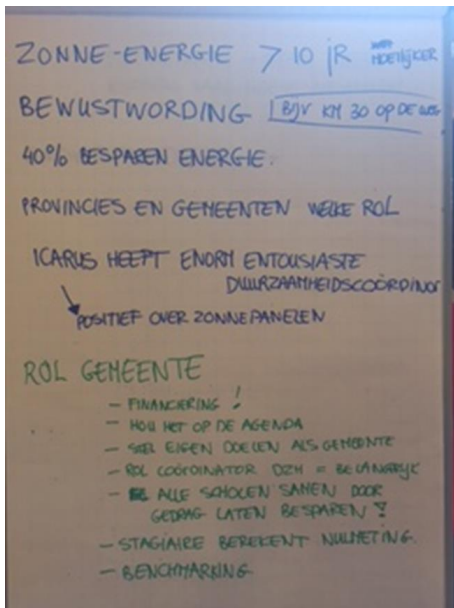 ZONNE-ENERGIE > 10 jR MOEILIJKER
BEWUSTWORDING BIJV KM 30 OP DE WEG
40% BESPAREN ENERGIE.
PROVINCIES EN GEMEENTEN WELKE ROL
ICARUS HEEFT ENORM ENTOUSIASTE
DUURZAAMHEIDSCOÖRDINOT
POSITIEF OVER ZONNEPANELEN
ROL GEMEENTE
- FINANCIERING !
- HOU HET OP DE AGENDA
- STEL EIGEN DOELEN ALS GEMEENTE
- ROL COÖRDINATOR DZH = BELANGRIJK
- ALLE SCHOLEN SAMEN DOOR
GEDRAG LATEN BESPAREN !
- STAGIAIRE BEREKENT NULMETING.
- BENCHMARKING